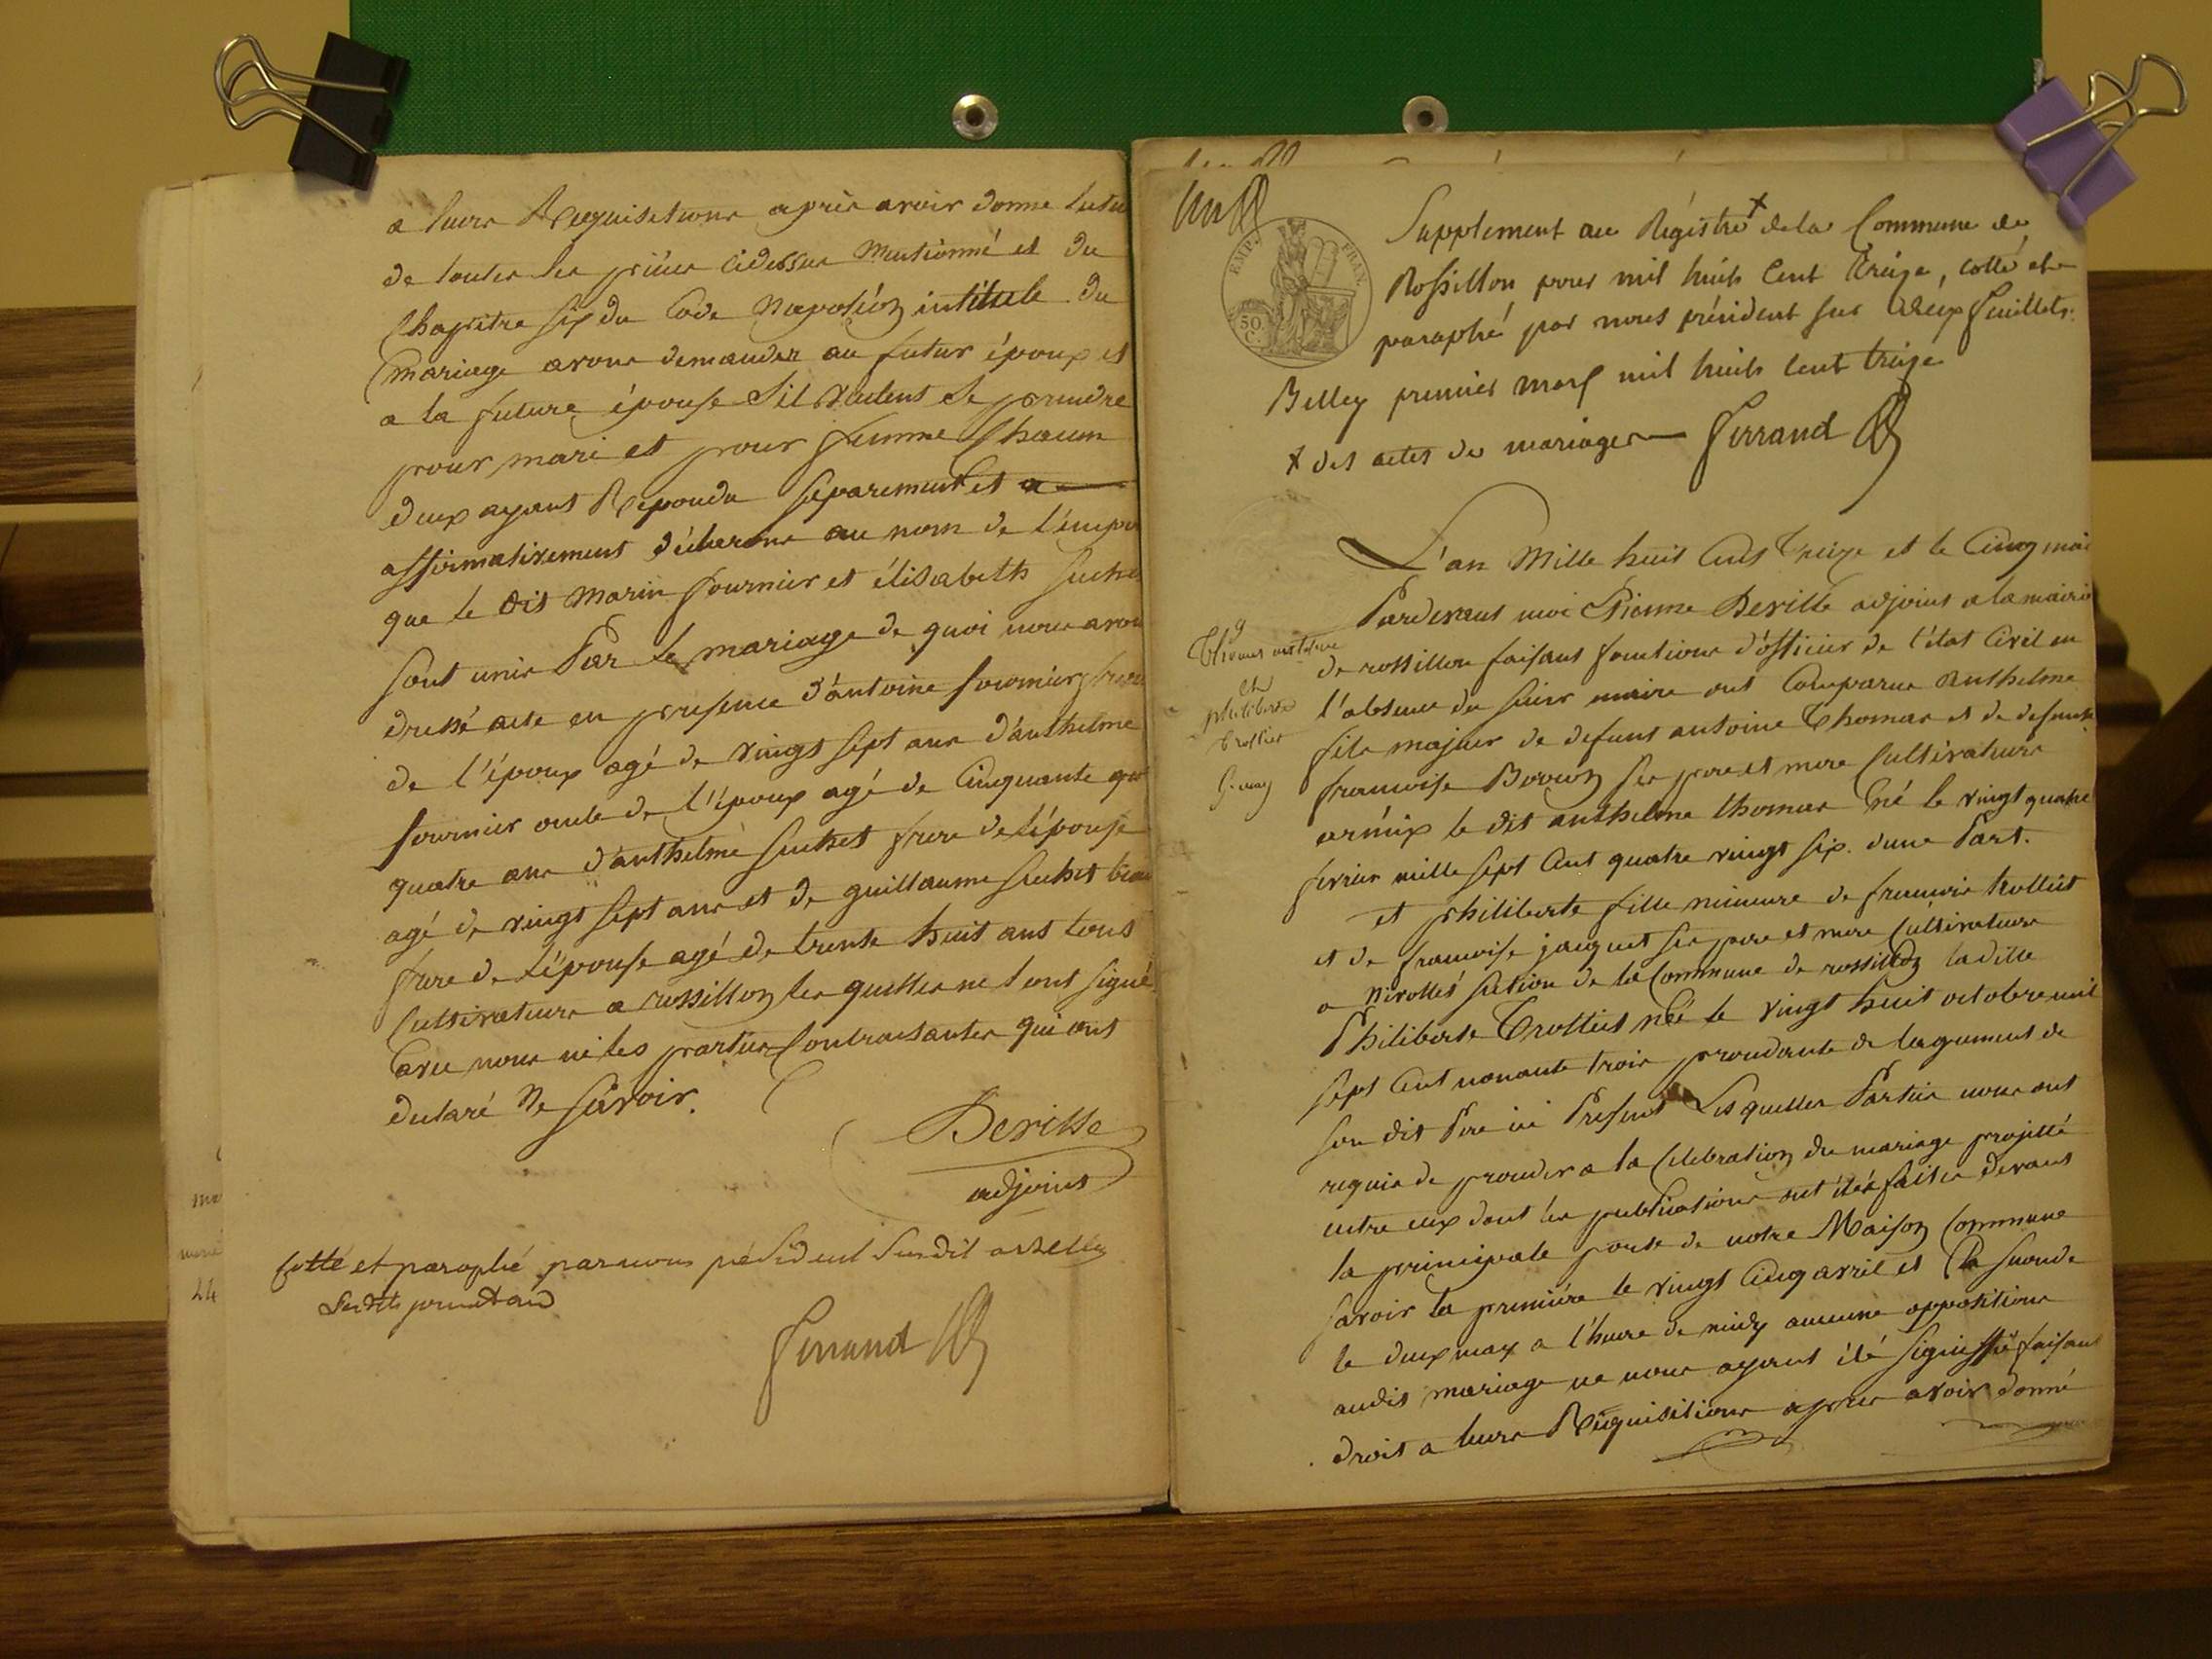 a leurs Requisitions après avoir donné lectu
de toutes les pièces cidessus mentionné et du
Chapitre six du Code Napoléon intitule du
mariage avons demander au futur époux et
a la future épouse s'il veulent se prendre
pour mari et pour femme Chacun
deux ayant Repondu separement et a
affirmativement déclarons au nom de l'emper
que le dit Marin fournier et élisabeth suchet
sont unis Par le mariage de quoi nous avons
dressé acte en presence d'antoine fournier frere
de l'époux agé de vingt sept ans d'anthelme
fournier oncle de l'époux agé de Cinquante
quatre ans d'anthelme suchet frere de l'épouse
agé de vingt sept ans et de guillaume suchet beau
frere de l'épouse agé de trente huit ans tous
Cultivateurs a rossillon les quelles ne l'ont signé
avec nous ni les parties Contractantes qui ont
declaré Ne savoir.
Deville
adjoint
Cotté et paraphé par nous président susdit
Ferrand
EMP. FRAN.
50
C.
Supplement au Régistre + de la Commune de
Rossillon pour mil huit Cent treize, cotté et
paraphé par nous président sur deux feuillets.
Belley premier mars mil huit Cent treize
+ des actes de mariages Ferrand
L'an Mille huit Cents treize et le Cinq mai
Pardevant moi Etienne Deville adjoint a la mairie
de rossillon faisant fonctions d'officier de l'état Civil en
l'absence du sieur maire ont Comparus anthelme
fils majeur de defunt antoine Thomas et de defunte
francoise ses pere et mere Cultivateurs
armix le dit anthelme thomas né le vingt quatre
fevrier mille sept Cent quatre vingt six. dune Part.
et philiberte fille mineure de francois trolliet
et de francoise jacquet ses pere et mere Cultivateurs
a Virollet section de la Commune de rossillon ladite
Philiberte Trolliet née le vingt huit octobre mil
sept Cent nonante trois procedante de lagrement de
son dit Pere ici Present Lesquelles Parties nous ont
requis de proceder a la Celebration du mariage projetté
entre eux dont les publications ont étés faites devant
la principale porte de notre Maison Commune
savoir la première le vingt Cinq avril et la seconde
le deux may a l'heure de midy aucune opposition
audit mariage ne nous ayant été signiffié faisant
droit a leurs Réquisitions apres avoir donné
9
Thomas antelme
et
philiberte
trolliet
5. may